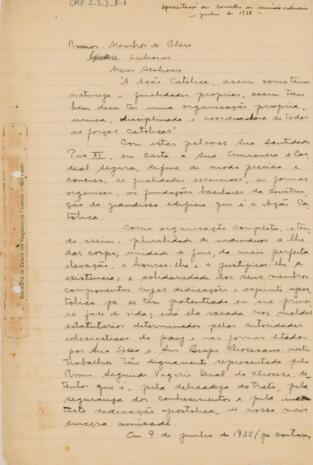 CMP 2.3.3.8-1
Apresentação ao conselho
junho de 1938
Rvmos. Membros do Clero
Senhores
Meus Senhores
"A Ação Católica, assim como tem
natureza e finalidades proprias, assim tam
bem deve ter uma organisação propria,
unica, disciplinada e coordenadora de todas
as forças catolicas"
Com estas palavras Sua Santidade
Pio XI, em carta a Sua Eminencia o Car
deal Segura, define de modo preciso e
conciso, as finalidades essenciais, as formas
organicas, os fundações basilares da constru
ção do grandioso edificio que é a Ação Ca
tolica.
Como organisação completa, e ten
do assim, pluralidade de individuos a lhe
dar corpo, unidade de fins, da mais perfeita
elevação, a honrar-lhe e a justificar-lhe a
existencia, e solidariedade dos seus membros
componentes cujas dedicações e espirito apos
tolico ja se tem patenteado em sua primei
ra fase de vida; essa ela vasada nos moldes
estatutarios determinados pelas autoridades
eclesiasticas do paiz e nas formas ditadas
por Sua Excia o Snr. Bispo Diocesano, neste
trabalhos tão dignamente representado pelo
Rvmo. Segundo Vigario Geral da Diocese, de
tentor que é, pela delicadeza do trato, pela
segurança dos conhecimentos e pela
dedicação apostolica, de nossa mais
sincera amisade.
Em 9 de junho de 1935 (ja contam,